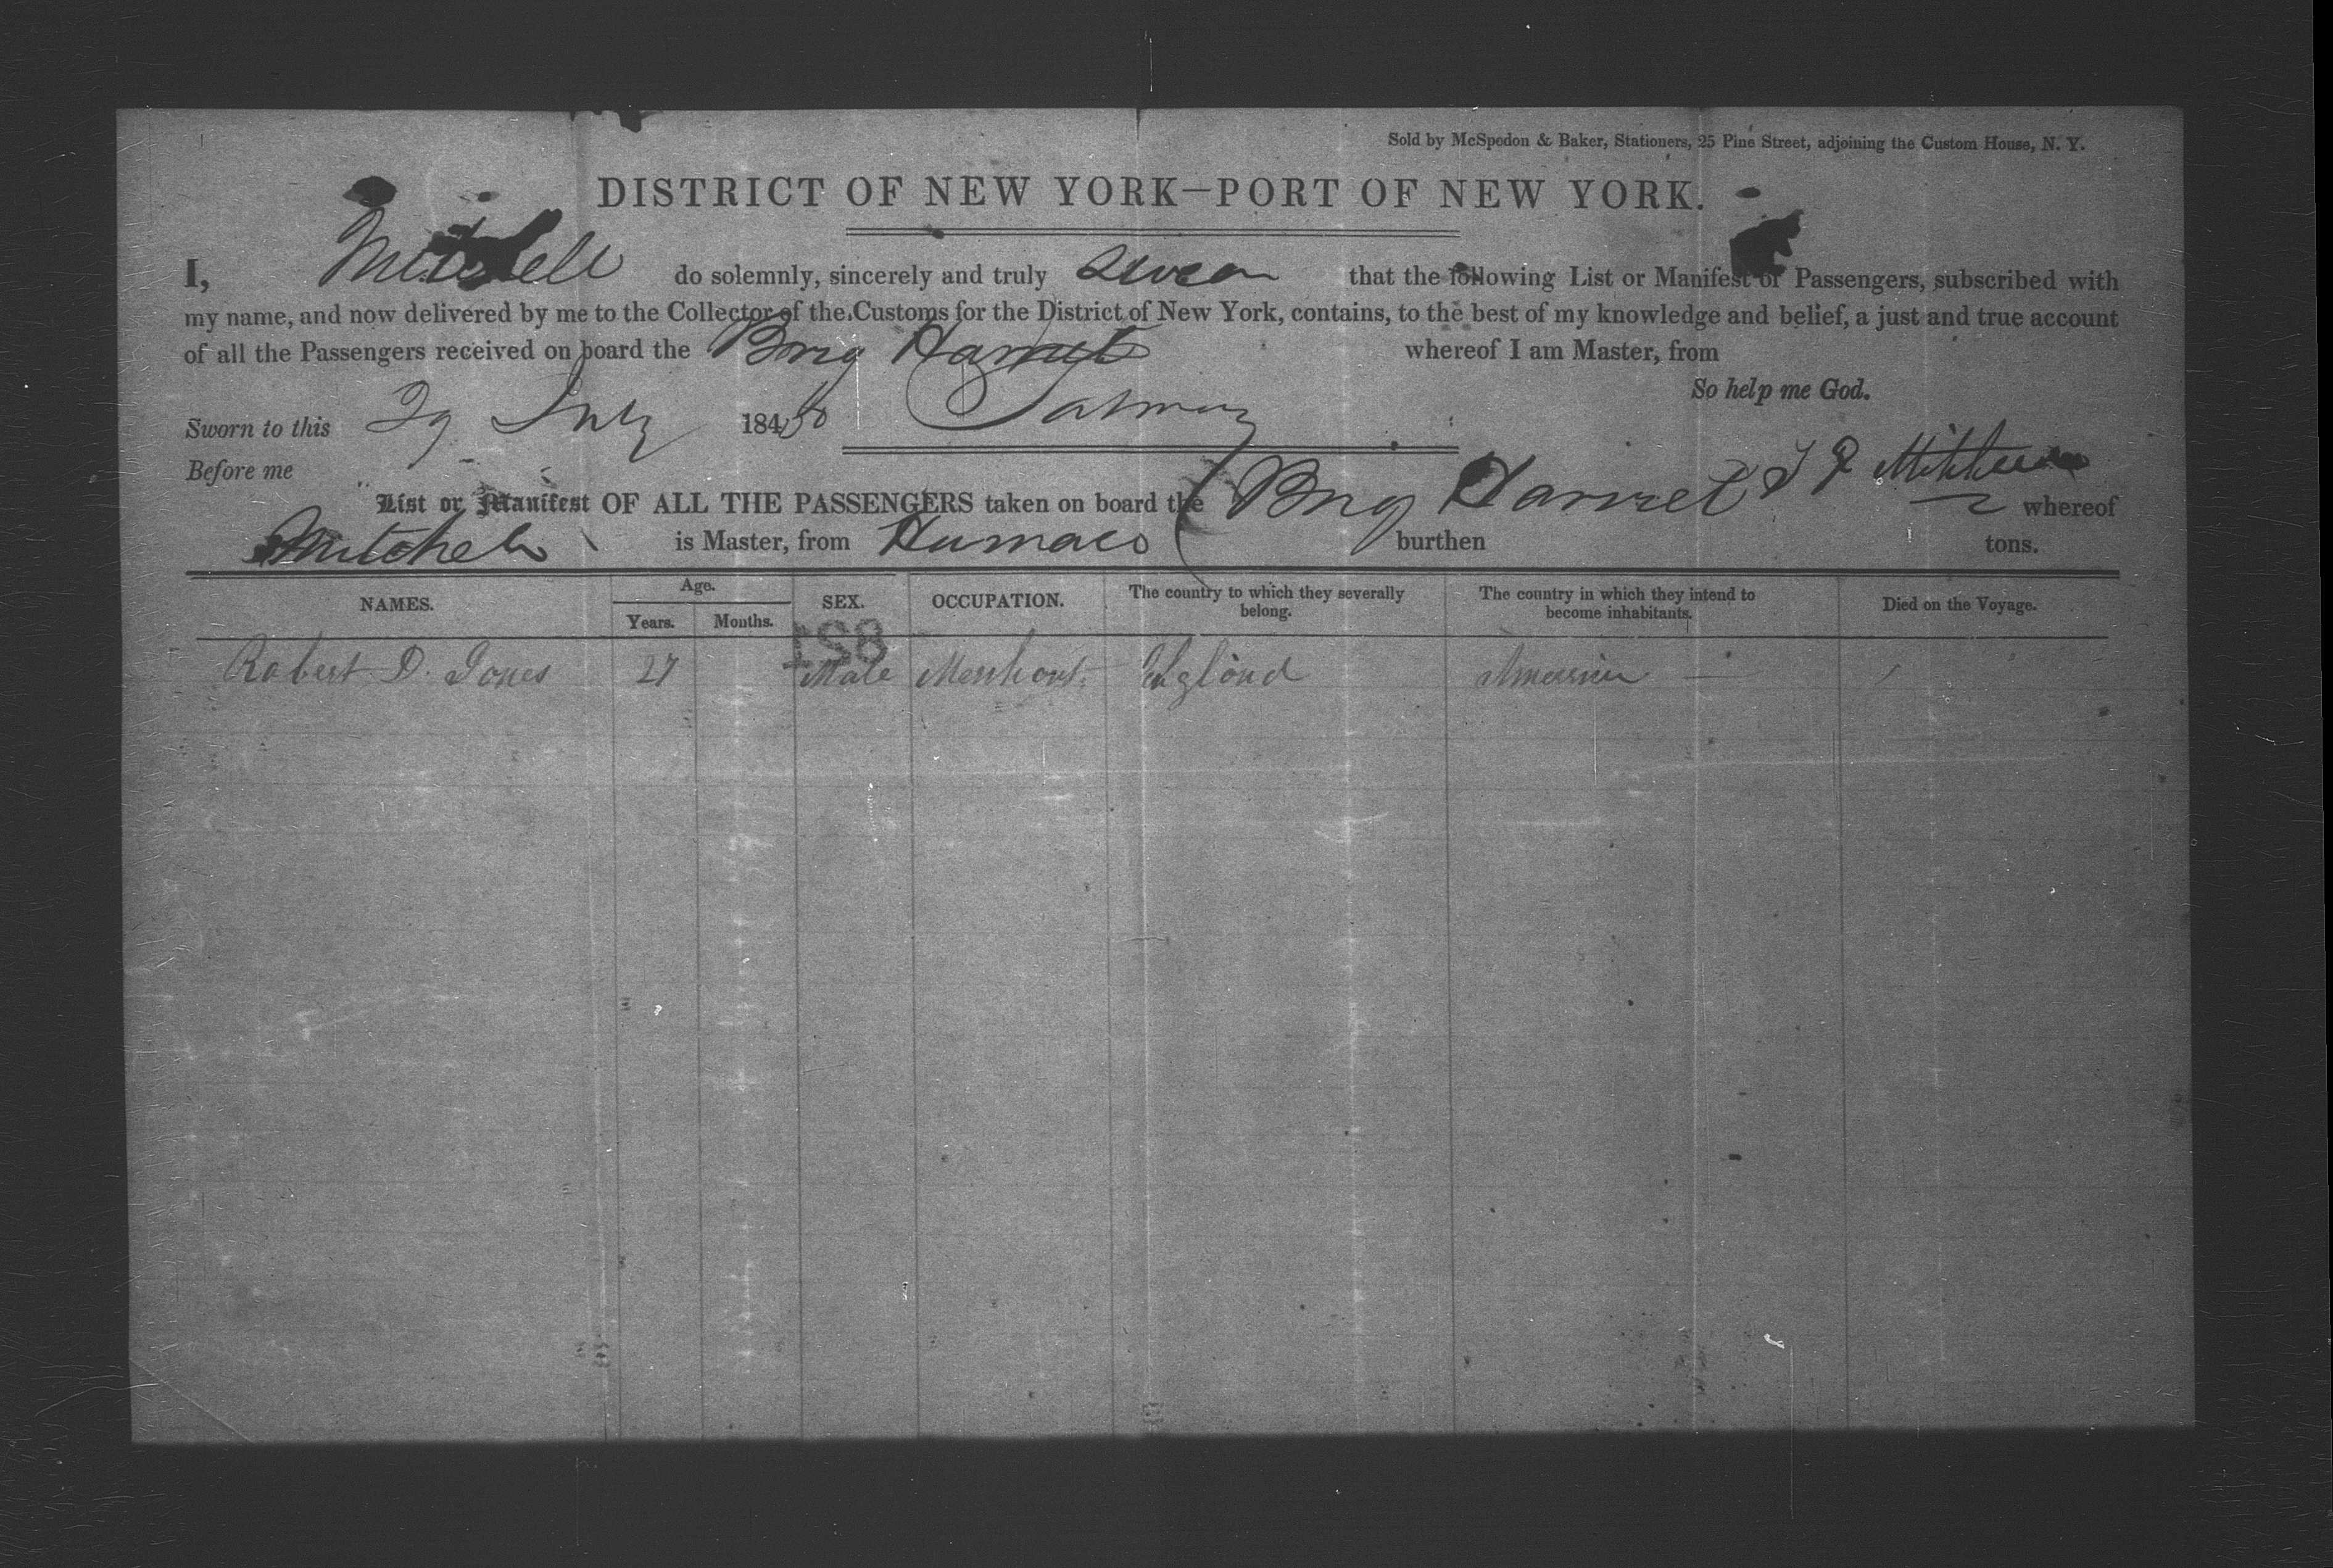 Sold by McSpedon & Baker, Stationers, 25 Pine Street, adjoining the Custom House, N. Y.
DISTRICT OF NEW YORK—PORT OF NEW YORK.
I, Mitchell do solemnly, sincerely and truly swear that the following List or Manifest of Passengers, subscribed with
my name, and now delivered by me to the Collector of the Customs for the District of New York, contains, to the best of my knowledge and belief, a just and true account
of all the Passengers received on board the Brig Harriet whereof I am Master, from
So help me God.
Sworn to this 29 July 184 50
Before me
List or Manifest OF ALL THE PASSENGERS taken on board the Brig Harriet whereof
Mitchell is Master, from Humaco burthen tons.
NAMES. Age. SEX. OCCUPATION. The country to which they severally belong. The country in which they intend to become inhabitants. Died on the Voyage.
Years. Months.
821
Robert D. Jones 27 Male Merchant England America